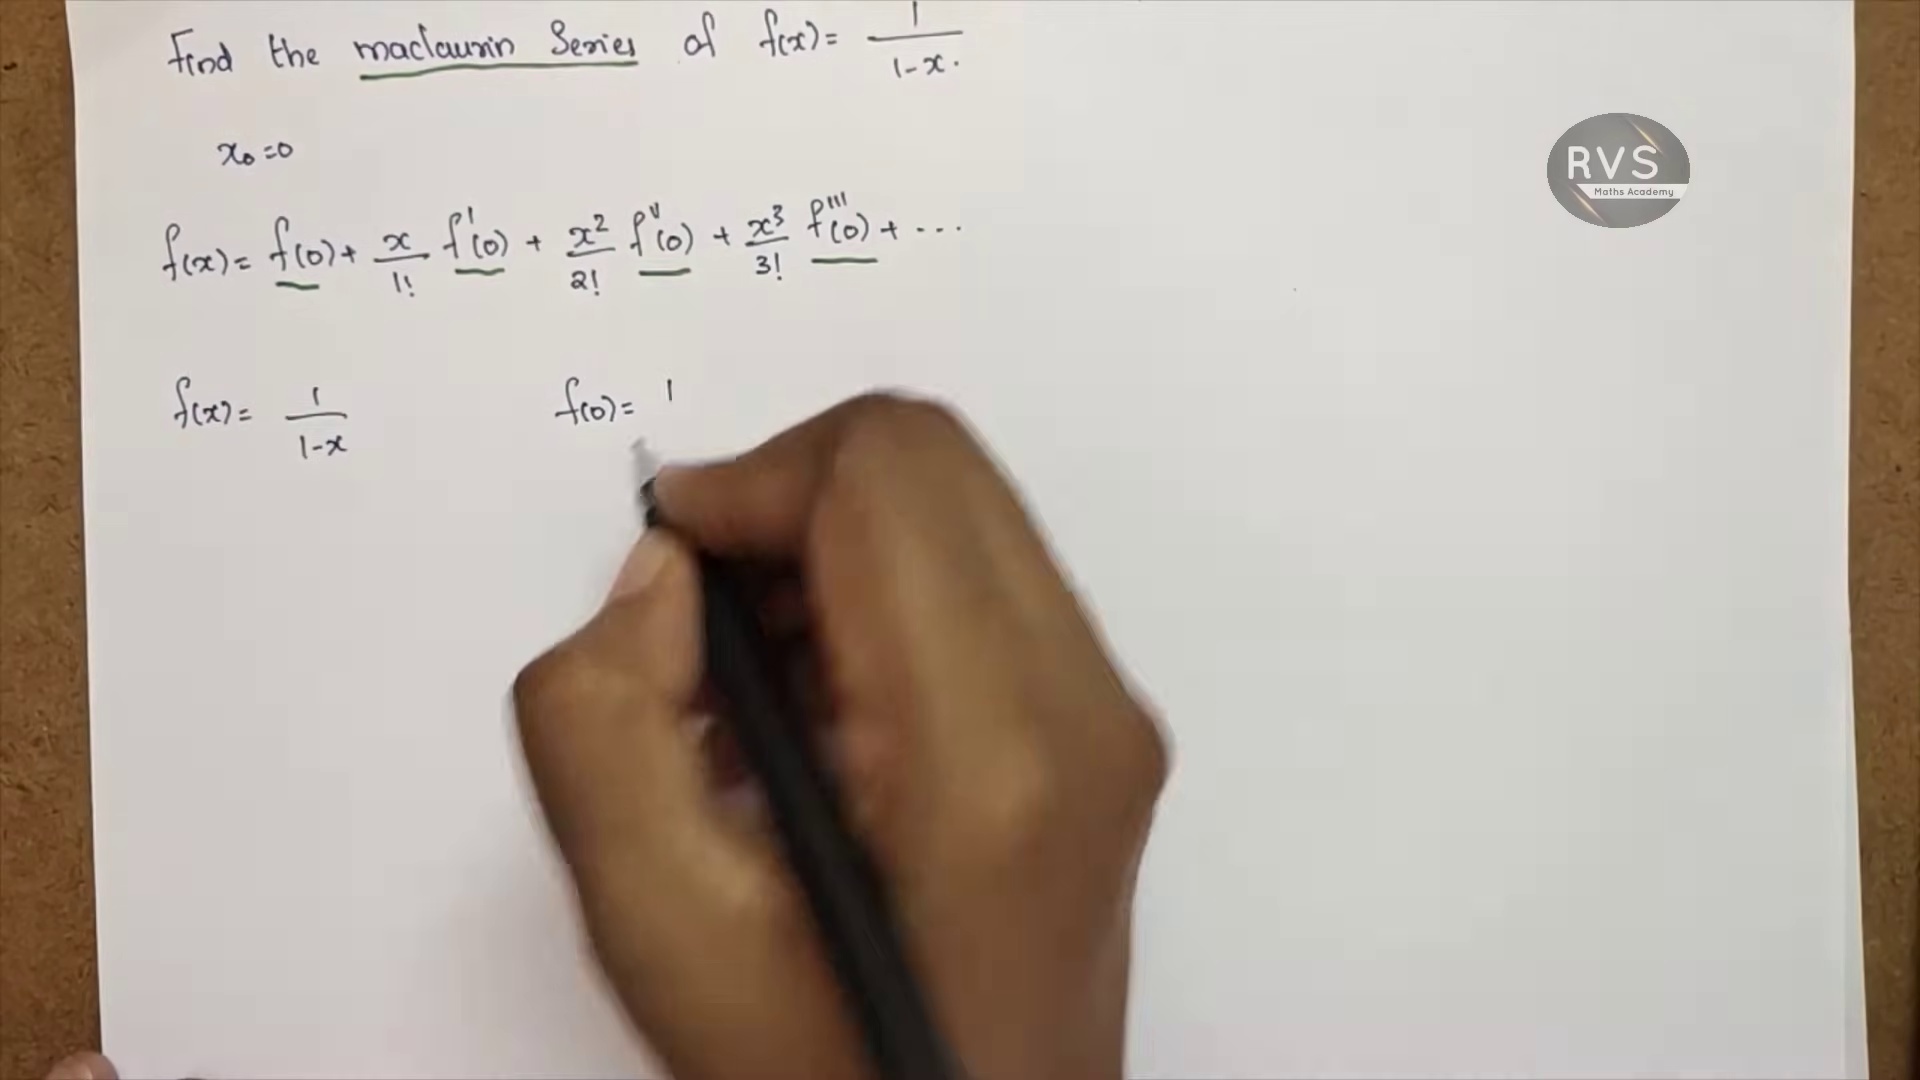 Find the maclaurin Series of f(x) = 1/(1-x).
RVS
Maths Academy
x₀=0
f(x) = f(0) + x/1! f'(0) + x²/2! f''(0) + x³/3! f'''(0) + ...
f(x) = 1/(1-x) f(0) = 1